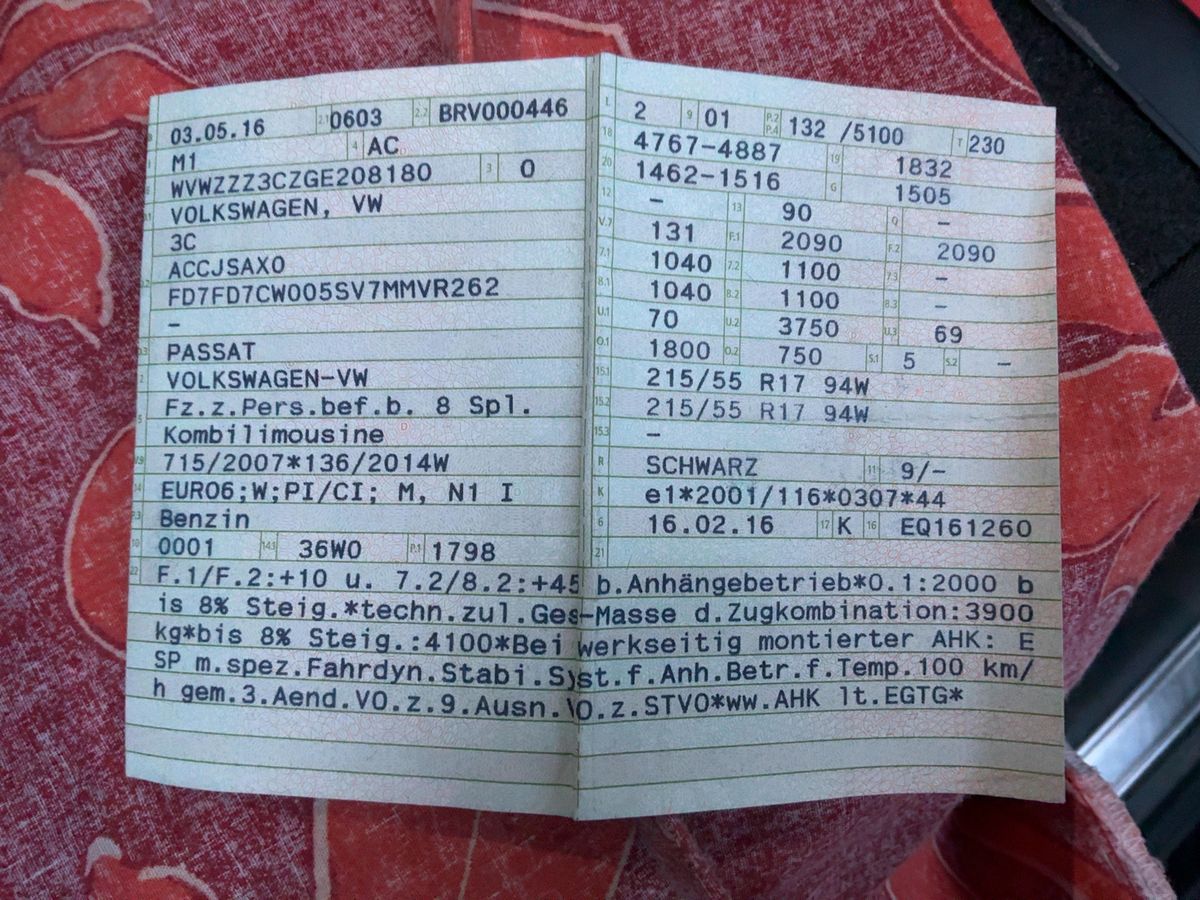 03.05.16 2.1 0603 2.2 BRV000446
M1 4 AC
WVWZZZ3CZGE208180 3 0
VOLKSWAGEN, VW
3C
ACCJSAX0
FD7FD7CW005SV7MMVR262
–
PASSAT
VOLKSWAGEN-VW
Fz.z.Pers.bef.b. 8 Spl.
Kombilimousine
715/2007*136/2014W
EURO6;W;PI/CI; M, N1 I
Benzin
10 0001 14.1 36W0 P.1 1798
L 2 9 01 P.2 P.4 132 /5100 T 230
18 4767-4887 19 1832
20 1462-1516 G 1505
12 – 13 90 Q –
V.7 131 F.1 2090 F.2 2090
7.1 1040 7.2 1100 7.3 –
8.1 1040 8.2 1100 8.3 –
U.1 70 U.2 3750 U.3 69
O.1 1800 O.2 750 S.1 5 S.2 –
15.1 215/55 R17 94W
15.2 215/55 R17 94W
15.3 –
R SCHWARZ 11 9/-
K e1*2001/116*0307*44
6 16.02.16 17 K 16 EQ161260
21
22 F.1/F.2:+10 u. 7.2/8.2:+45 b.Anhängebetrieb*O.1:2000 b
is 8% Steig.*techn.zul.Ges-Masse d.Zugkombination:3900
kg*bis 8% Steig.:4100*Bei werkseitig montierter AHK: E
SP m.spez.Fahrdyn.Stabi.Syst.f.Anh.Betr.f.Temp.100 km/
h gem.3.Aend.VO.z.9.Ausn.VO.z.STVO*ww.AHK lt.EGTG*